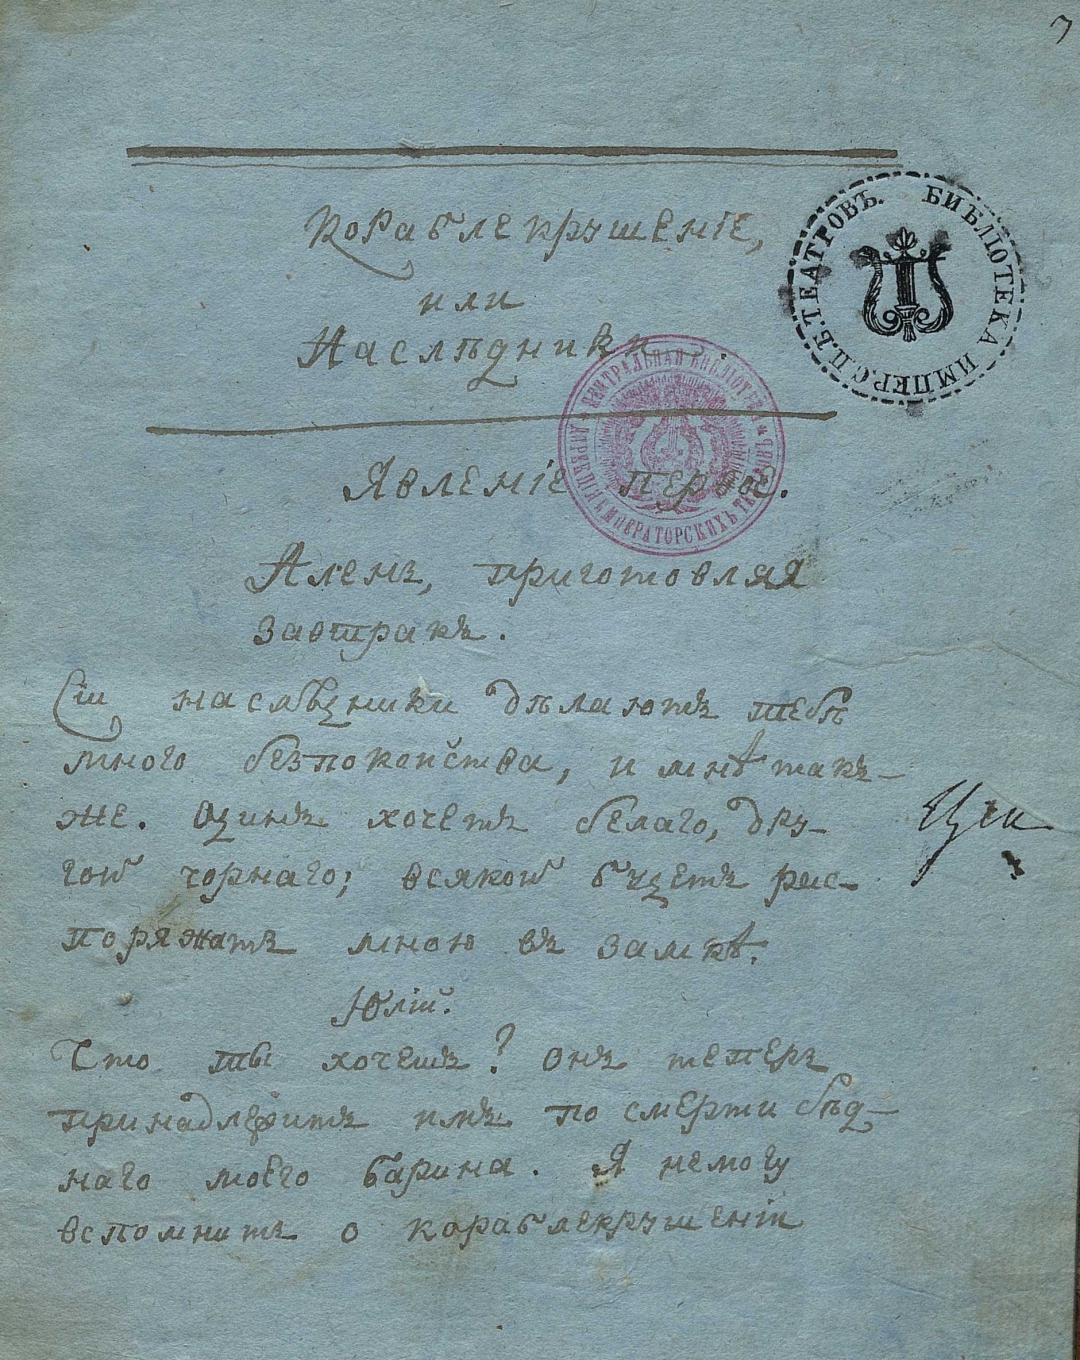 Кораблекрушенiе,
или
Наслѣдники.
БИБЛIОТЕКА ИМПЕР. С.П.Б. ТЕАТРОВЪ.
ЦЕНТРАЛЬНАЯ БИБЛIОТЕКА ДИРЕКЦIИ ИМПЕРАТОРСКИХЪ ТЕАТРОВЪ
Явленiе первое.
Аленъ, приготовляя
завтракъ.
Сiи наслѣдники дѣлаютъ тебѣ
много безпокойства, и мнѣ так-
же. Одинъ хочетъ белаго, дру-
гой чорнаго; всякой будетъ рас-
поряжать мною въ замкѣ.
Юлiй.
Что ты хочешь? онъ теперь
принадлежитъ имъ по смерти бѣд-
наго моего барина. Я немогу
вспомнить о кораблекрушенiи